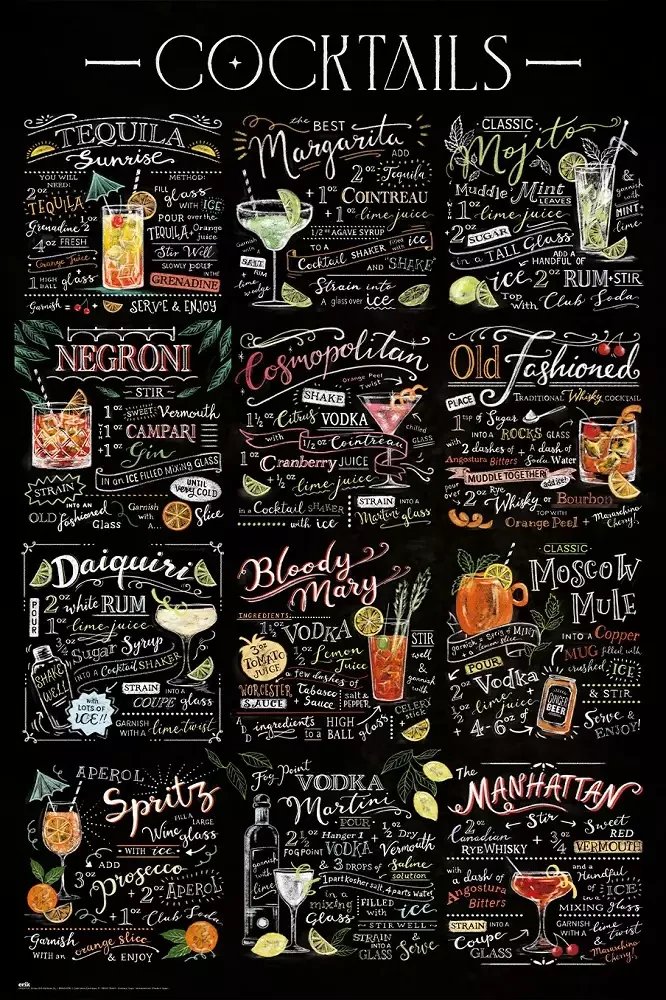 COCKTAILS
TEQUILA
Sunrise
YOU WILL NEED:
2 oz TEQUILA
Grenadine 2
1 oz
4 oz FRESH
Orange Juice
1 HIGH BALL glass
Garnish =
METHOD:
FILL glass
WITH ICE
POUR over the
TEQUILA + Orange juice
Stir Well
SLOWLY POUR IN THE
GRENADINE
SERVE & ENJOY
the BEST
Margarita
ADD
2 oz Tequila
+ 1 oz COINTREAU
+ 1 oz lime juice
1/2 oz AGAVE SYRUP
TO A
Cocktail SHAKER filled with ice
AND "SHAKE"
Garnish with
SALT RIM
lime wedge
Strain into
A glass over ice
CLASSIC
Mojito
Muddle Mint LEAVES
WITH 1 oz lime juice
2 SUGAR
in a TALL Glass
& garnish with MINT + lime
ADD A HANDFUL OF
ice 2 oz RUM + STIR
Top with Club Soda
NEGRONI
STIR
1 oz SWEET Vermouth
1 oz CAMPARI
+ 1 oz Gin
IN an ICE FILLED MIXING GLASS
STRAIN
UNTIL very COLD
INTO AN
OLD fashioned Glass
Garnish with A...
Slice
Cosmopolitan
Orange Peel twist
SHAKE
1 1/2 oz Citrus VODKA
with 1/2 oz Cointreau
chilled GLASS
1 oz Cranberry JUICE
+ 1/2 oz lime juice
in a Cocktail SHAKER
with ice
STRAIN INTO A
Martini glass
Old Fashioned
PLACE
TRADITIONAL Whisky COCKTAIL
1 tsp of Sugar
INTO A ROCKS GLASS
with 2 dashes of
Angostura Bitters
+ A dash of
Soda Water
MUDDLE TOGETHER
add ice!
pour over 2 oz Rye
Whisky or Bourbon
TOP WITH
Orange Peel + Maraschino Cherry!
Daiquiri
POUR
2 oz white RUM
1 oz lime juice
3/4 oz Sugar Syrup
INTO a Cocktail SHAKER
SHAKE WELL
STRAIN INTO A
COUPE glass
with LOTS OF ICE!!
GARNISH WITH A lime twist
Bloody
Mary
INGREDIENTS
1 1/2 oz VODKA
3 oz TOMATO JUICE
1/2 oz Lemon Juice
a few dashes of
WORCESTER SAUCE
Tabasco Sauce
salt & PEPPER
STIR well & garnish with
CELERY stick
ingredients to a HIGH BALL glass
CLASSIC
MOSCOW
MULE
garnish = Sprig of MINT
+ lemon slice
INTO A Copper
MUG filled with
crushed ICE
& STIR
POUR
2 oz Vodka
1/2 oz lime juice
+ 4-6 oz of
GINGER BEER
Serve & ENJOY!
APEROL
Spritz
FILL A LARGE
Wine glass
WITH ice
ADD
3 oz Prosecco
+ 2 oz APEROL
+ 1 oz Club Soda
Garnish
WITH AN orange slice
& ENJOY
Fog-Point
VODKA
Martini
POUR
2 1/2 oz Hanger 1
FOG POINT VODKA
+ 1/2 oz Dry
Vermouth
& 3 DROPS of saline solution
1 part kosher salt, 4 parts water
garnish with lime
in a mixing Glass
FILLED with ice
STIR WELL
STRAIN INTO A GLASS
& Serve
The
MANHATTAN
2 oz Canadian
RYE WHISKY
Stir
+ 3/4 oz
Sweet RED
VERMOUTH
with a dash of
Angostura Bitters
and a Handful of ICE
IN A MIXING GLASS
STRAIN INTO A
Coupe GLASS
GARNISH WITH A lime twist
& Maraschino Cherry!
erik